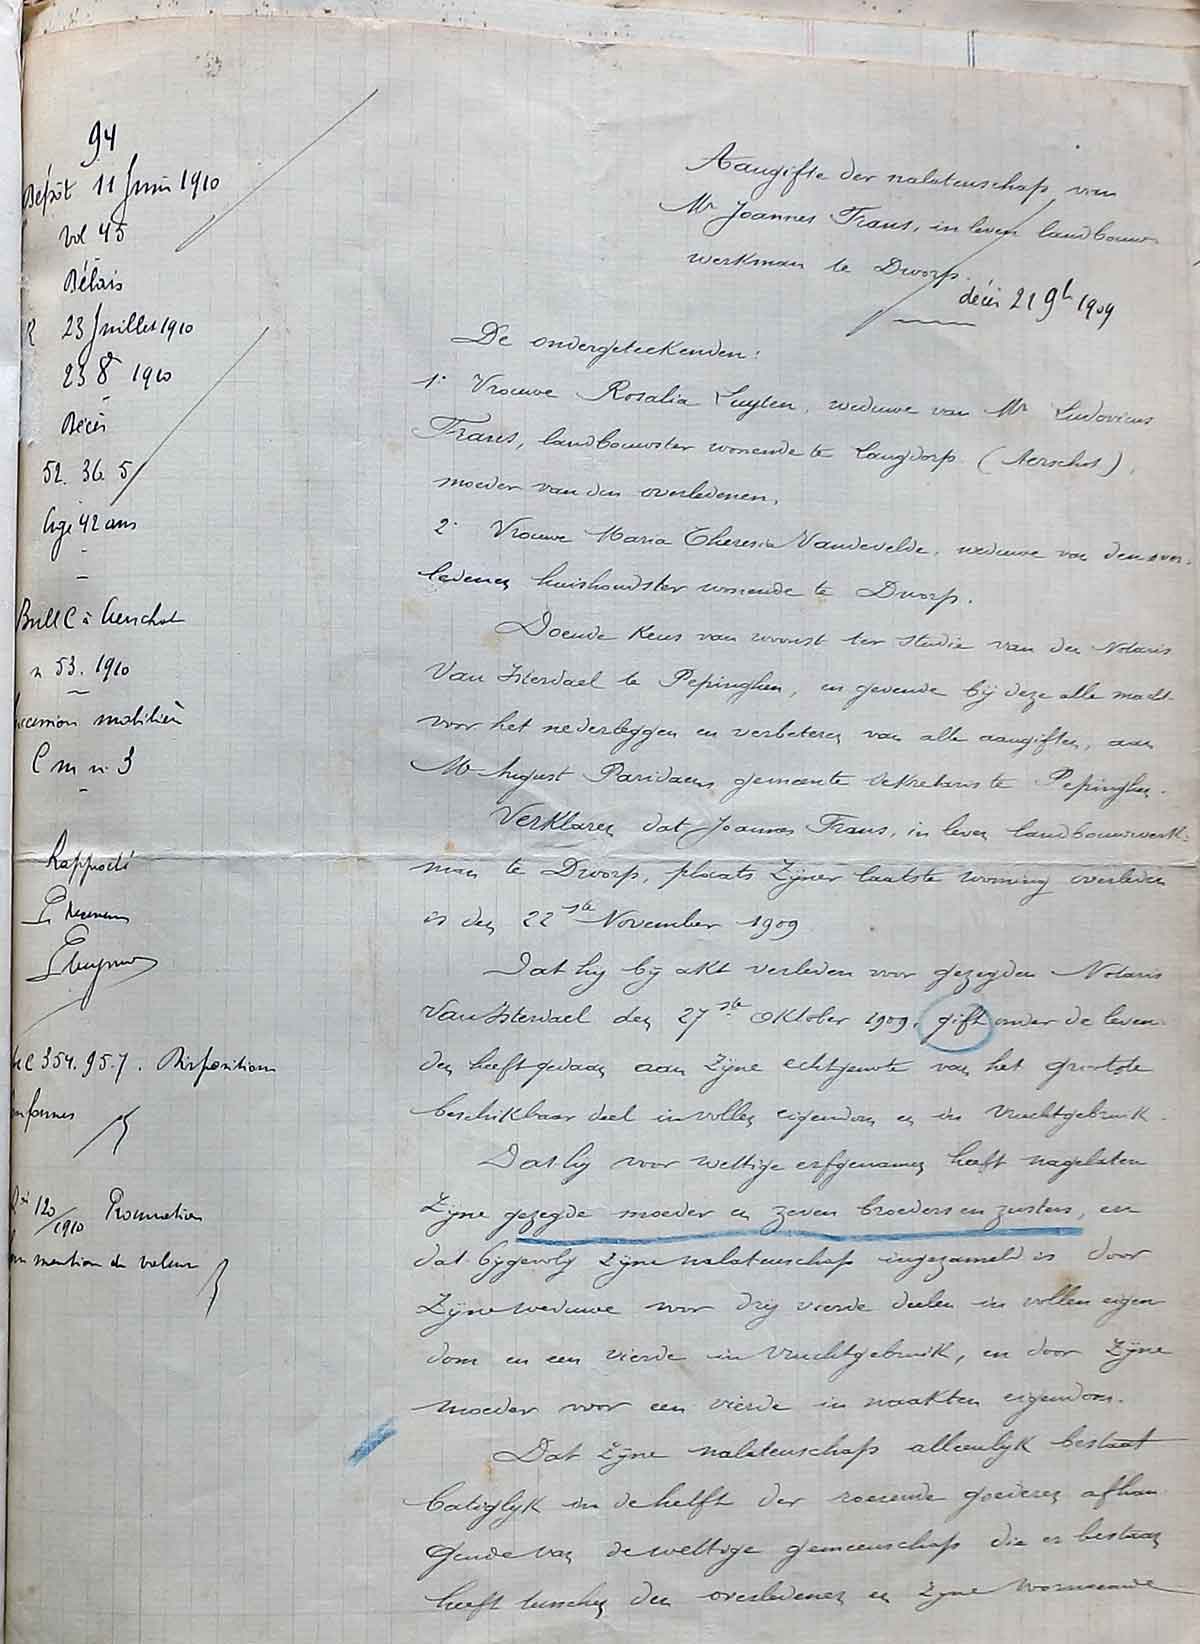 94
Dépôt 11 Juin 1910
Vol 45
Délais
23 Juillet 1910
23 8 1910
Décès
52. 36. 5
Age 42 ans
Bull C à Aerschot
n 53. 1910
Succession mobilière
C m n 3
Rapporté
354.95.7. Dispositions
120/1910 Procuration
mention de valeur
Aangifte der nalatenschap van
Mr Joannes Frans, in leven landbouw-
werkman te Dworp.
décès 21 9b 1909
De ondergeteekenden:
1. Vrouwe Rosalia Luyten, weduwe van Mr Ludovicus
Frans, landbouwster wonende te Langdorp (Aerschot),
moeder van den overledenen,
2. Vrouwe Maria Theresia Vandevelde, weduwe van den over-
ledenen huishoudster wonende te Dworp.
Doende keus van woonst ter studie van den Notaris
Van Isterdael te Pepinghen, en gevende bij deze alle macht
voor het nederleggen en verbeteren van alle aangiften, aan
Mr August Paridaens, gemeente sekretaris te Pepinghen.
Verklaren dat Joannes Frans, in leven landbouwwerk-
man te Dworp, plaats zijner laatste woning overleden
is den 22ste November 1909
Dat hij bij akt verleden voor gezegden Notaris
Van Isterdael den 27ste Oktober 1909, gift onder de leven-
den heeft gedaan aan zijne echtgenote van het grootste
beschikbaar deel in vollen eigendom en in vruchtgebruik.
Dat hij voor wettige erfgenamen heeft nagelaten
zijne gezegde moeder en zeven broeders en zusters, en
dat bijgevolg zijne nalatenschap ingezameld is door
zijne weduwe voor drij vierde deelen in vollen eigen
dom en een vierde in vruchtgebruik, en door zijne
moeder voor een vierde in naakten eigendom.
Dat zijne nalatenschap alleenlijk bestaat
batiglijk in de helft der roerende goederen afhan
gende van de wettige gemeenschap die er bestaan
heeft tusschen den overledenen en zijne voornoemde